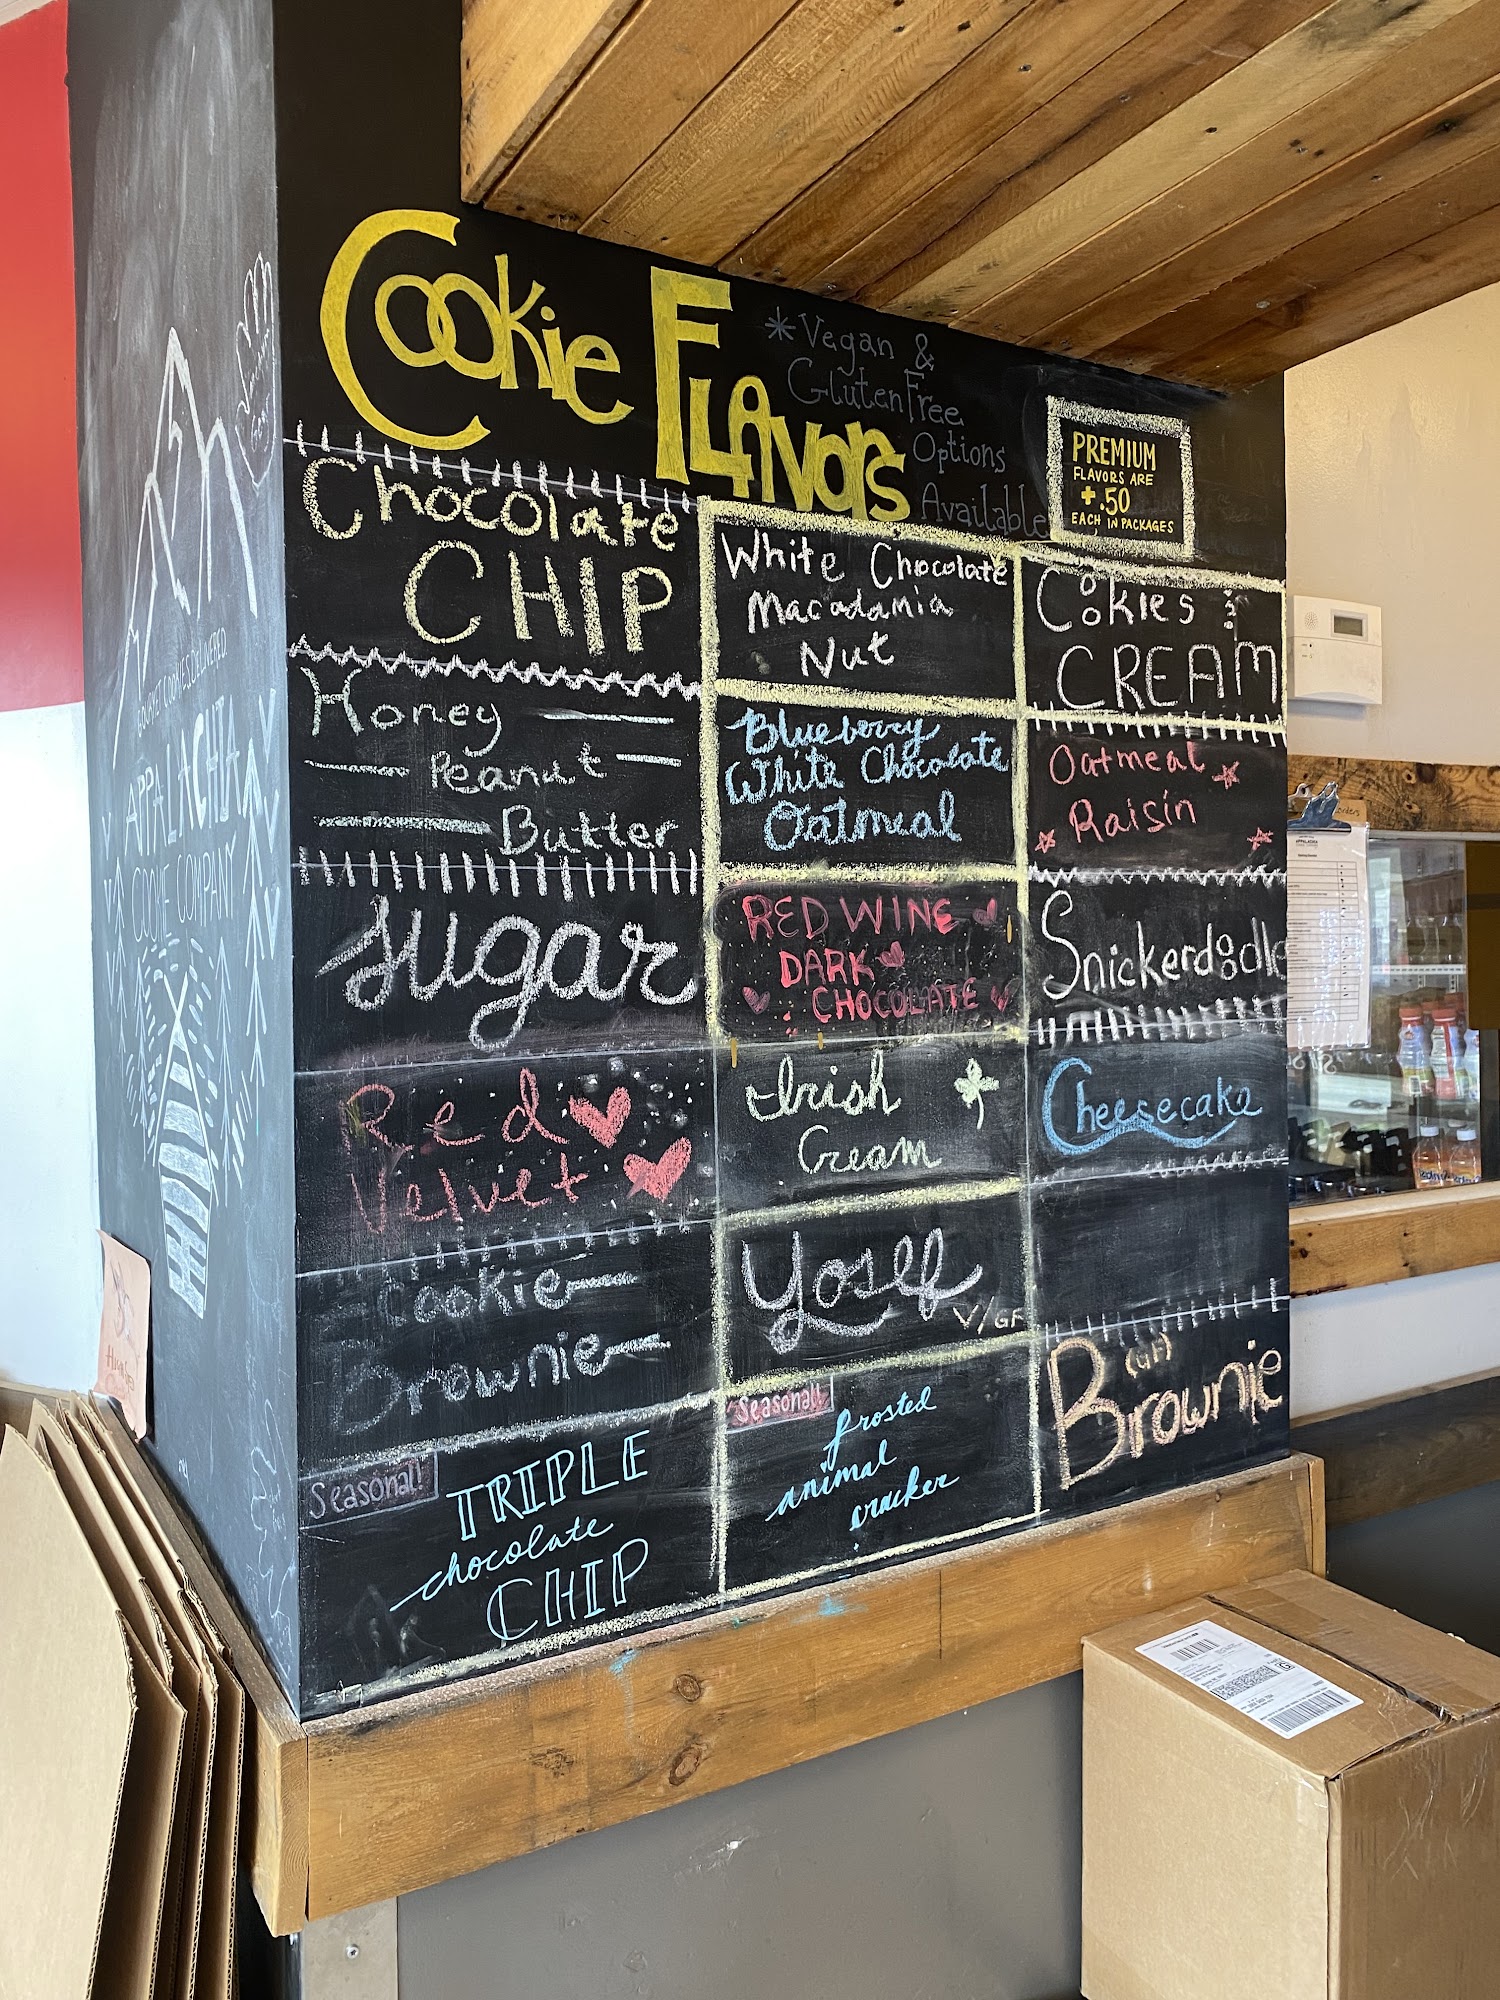 Cookie Flavors
*Vegan &
Gluten Free
Options
Available
PREMIUM
FLAVORS ARE
+.50
EACH IN PACKAGES
Chocolate
CHIP
Honey
Peanut
Butter
Sugar
Red
Velvet
Cookie
Brownie
Seasonal!
TRIPLE
chocolate
CHIP
White Chocolate
Macadamia
Nut
Blueberry
White Chocolate
Oatmeal
RED WINE
DARK
CHOCOLATE
Irish
Cream
Yosef
V/GF
Seasonal!
frosted
animal
cracker
Cookies &
CREAM
Oatmeal
Raisin
Snickerdoodle
Cheesecake
(GF)
Brownie
GOURMET COOKIES DELIVERED
APPALACHIA
COOKIE COMPANY